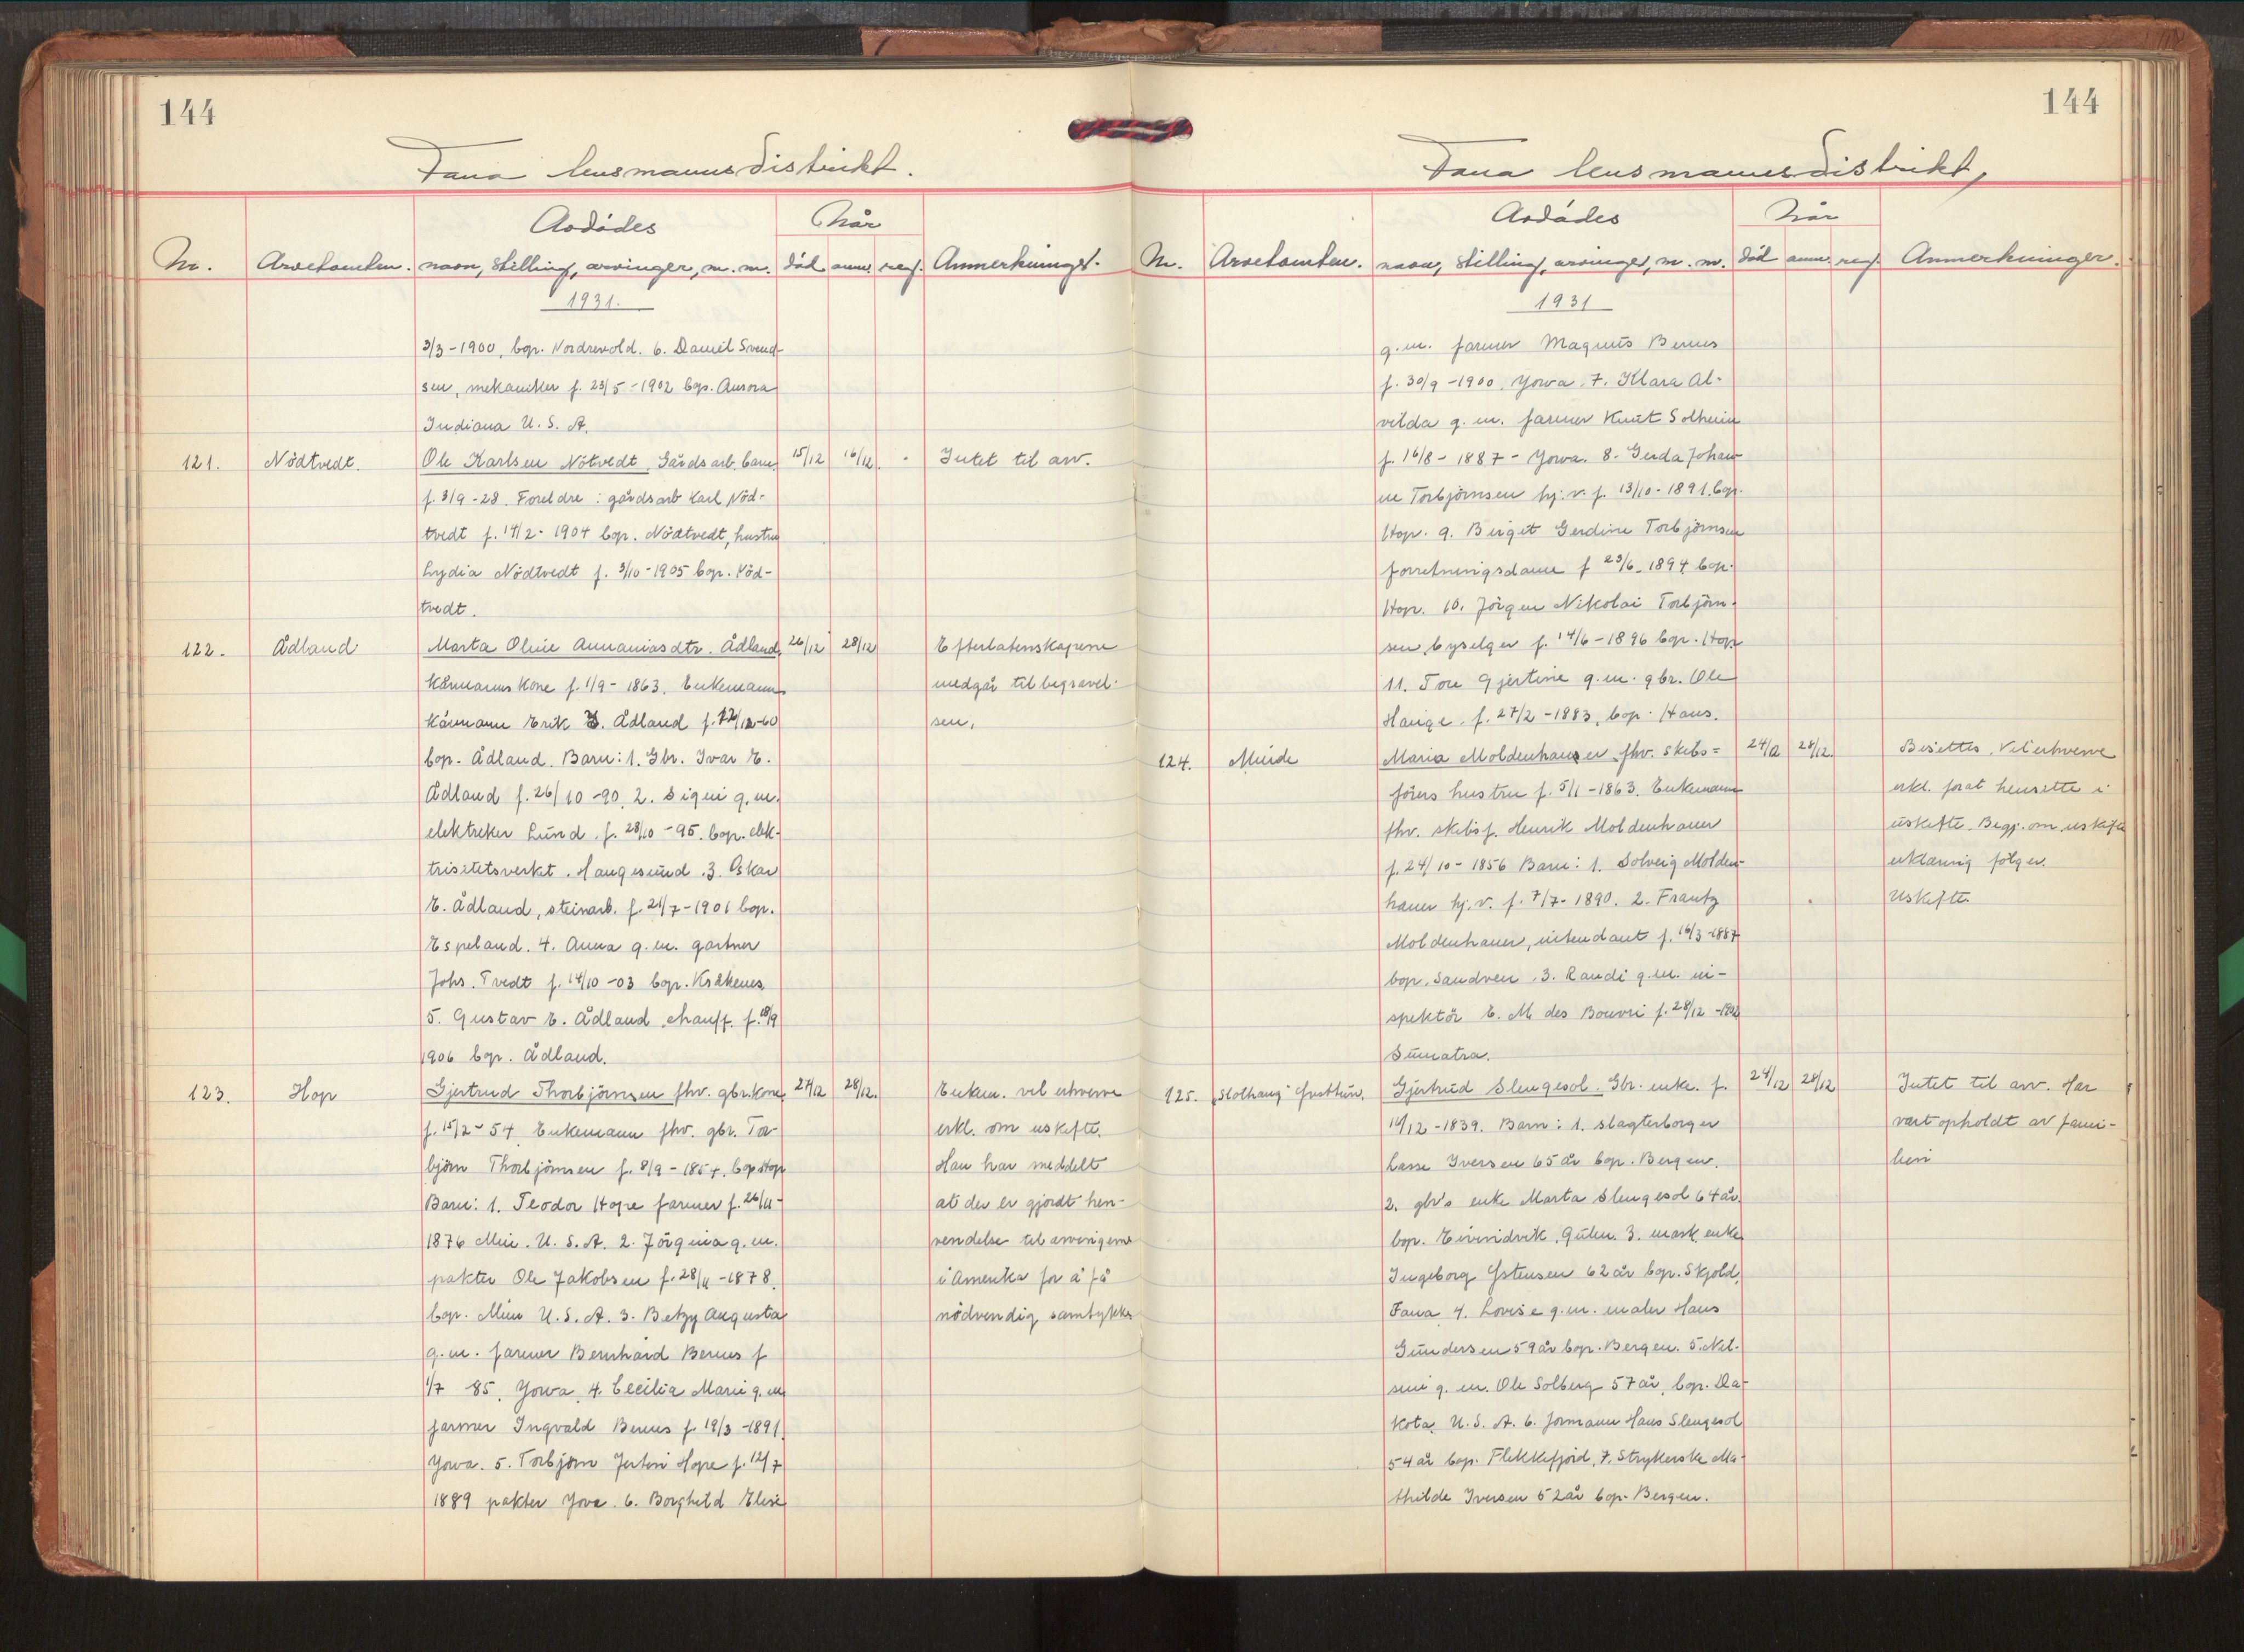 144
Fana lensmannsdistrikt.
Avdödes
Når
Nr. Arvetomten. navn, stilling, arvinger, m. m. död anm. reg. Anmerkninger.
1931.
3/3-1900, bop. Nordrevold. 6. Daniel Svend-
sen, mekaniker f. 23/5-1902 bop. Aurora
Indiana U. S. A.
121. Nödtvedt. Ole Karlsen Nötvedt, Gårdsarb. barn 15/12 16/12. Intet til arv.
f. 3/9-28. Foreldre: gårdsarb Karl Nöd-
tvedt f. 14/2-1904 bop. Nödtvedt, hustru
Lydia Nödtvedt f. 3/10-1905 bop. Nöd-
tvedt.
122. Ådland Marta Oline Annaniasdtr. Ådland, 26/12 28/12 Efterlatenskapene
kårmanns kone f. 1/9-1863. Enkemann medgår til begravel-
kårmann Erik Ådland bop. Ådland. Barn: 1. Gbr. Ivar E. sen.
Ådland f. 26/10-90. 2. Signi g. m.
elektriker Lund f. 28/10-95. bop. elek-
trisitetsverket. Haugesund. 3. Oskar
E. Ådland, steinarb. f. 21/7-1901 bop.
Espeland. 4. Anna g. m. gartner
Johs. Tvedt f. 14/10-03 bop. Kråkenes
5. Gustav E. Ådland, chauff. f. 18/9
1906 bop. Ådland.
123. Hop Gjertrud Thorbjörnsen fhv. gbr.kone, 27/12 28/12. Enkem. vel erhverve
f. 15/2-54. Enkemann fhv. gbr. Tor- erkl. om uskifte.
björn Thorbjörnsen f. 8/9-1854. bop Hop Han har meddelt
Barn: 1. Teodor Hope farmer f. 26/11- at der er gjordt hen-
1876 Min. U. S. A. 2. Jörgina g. m. vendelse til arvingene
pakter Ole Jakobsen f. 28/11-1878. i Amerika for å få
bop. Minn U. S. A. 3. Betzy Augusta nödvendig samtykke
g. m. farmer Bernhard Berus f
1/7 85. Yowa. 4. Cecilia Marie g. m
farmer Ingvald Berus f. 19/3-1891.
Yowa. 5. Torbjörn Jertin Hope f. 12/7
1889 pakter Yova. 6. Borghild Elise
144
Fana lensmannsdistrikt,
Avdödes
Når
Nr. Arvetomten. navn, stilling, arvinger, m. m. död anm. reg. Anmerkninger.
1931
g. m. farmer Magnus Berus
f. 30/9-1900. Yowa. 7. Klara Al-
vilda g. m. farmer Knut Solheim
f. 16/8-1887- Yowa. 8. Gerda Johan-
ne Torbjörnsen hj. v. f. 13/10-1891. bop.
Hop. 9. Birgit Gerdine Torbjörnsen
forretningsdame f 23/6-1894 bop.
Hop. 10. Jörgen Nikolai Torbjörn-
sen, byselger f. 14/6-1896 bop. Hop
11. Tore Gjertine g. m. gbr. Ole
Hauge. f. 27/2-1883, bop. Haus.
124. Minde Maria Moldenhauer, fhv. skibs= 24/12 28/12. Besittes. Vil erhverve
förers hustru f. 5/1-1863. Enkemann erkl. for at hensitte i
fhv. skibsf. Henrik Moldenhauer uskifte. Begj. om uskifte
f. 24/10-1856 Barn: 1. Solveig Molden- erklæring fölger.
hauer hj. v. f. 7/7-1890. 2. Frantz Uskifte.
Moldenhauer, intendant f. 16/3-1887
bop. Sandven. 3. Randi g. m. in-
spektör E. M. des Bouvri f. 28/12
Sumatra.
125. "Solhaug" Gjertrud Slengesol. Gbr. enke. f. 24/12 28/12 Intet til arv. Har
19/12-1839. Barn: 1. slagterborger vært opholdt av fami-
Lasse Iversen 65 år bop. Bergen. lien
2. gbr's enke Marta Slengesol 64 år.
bop. Eivindvik, Gulen. 3. mask. enke
Ingeborg Ystensen 62 år bop. Skjold,
Fana 4. Lovise g. m. maler Hans
Gundersen 59 år bop. Bergen. 5. Nel-
sini g. m. Ole Solberg 57 år, bop. Da-
kota, U. S. A. 6. formann Hans Slengesol
54 år bop. Flekkefjord, 7. Strykerske Ma-
thilde Iversen 52 år bop. Bergen.